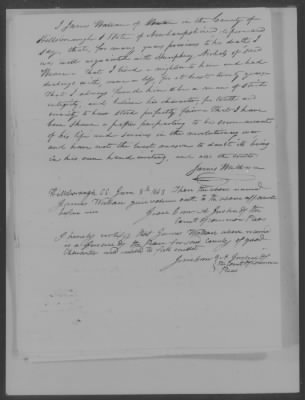 I James Wallace of Weare in the County of
Hillsborough & State of Newhampshire depose and
say, that for many years previous to his death I
was well acquainted with Humphrey Nichols of said
Weare that I lived a neighbor to him and had
dealings with more or less for at least twenty years
that I always found him to be a man of strict
integrity, and believe his character for truth and
veracity to have stood perfectly fair. That I have
been shown a paper purporting to be some account
of his life and services in the revolutionary war
and have not the least reason to doubt its being
in his own hand writing, and are the truth
James Wallace
Hillsborough SS. June 8th Then the above named
James Wallace gave oath to the above affidavit
before me
A Justice of the
Court of Common Pleas
I hereby certify that James Wallace above named
is a of the Place for said County of good
character and entitled to full credit
A Justice of
the Court of Common
Pleas